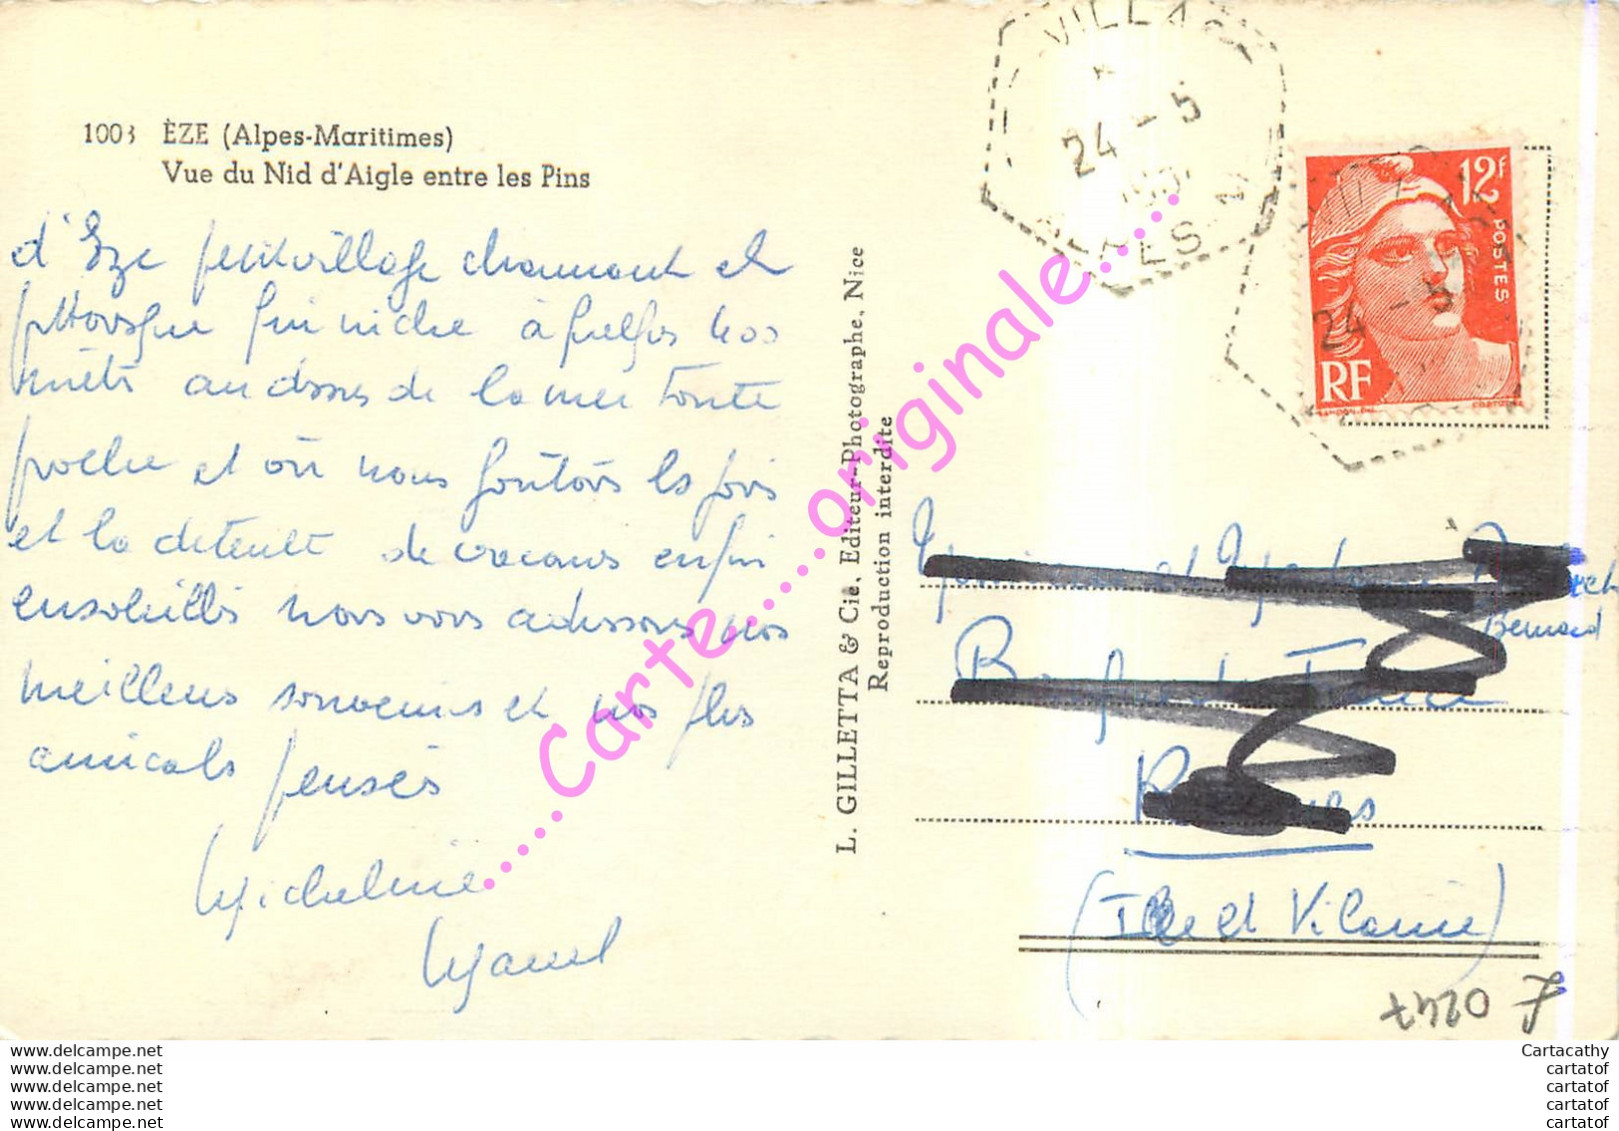 1003 ÈZE (Alpes-Maritimes)
Vue du Nid d'Aigle entre les Pins
d'Eze petit village charmant et
pittoresque qui niche à quelques 400
mètres au dessus de la mer toute
proche et où nous goûtons les joies
et la détente de vacances enfin
ensoleillés nous vous adressons nos
meilleurs souvenirs et nos plus
amicales pensés
Micheline
Marcel
L. GILLETTA & Cie, Editeur-Photographe, Nice
Reproduction interdite
VILLAGE
24 - 5
ALPES-M
12F
POSTES
RF
24 - 5
Monsieur et Madame
Bernard
Rennes
(Ille et Vilaine)
Carte.....originale....
www.delcampe.net
www.delcampe.net
www.delcampe.net
www.delcampe.net
www.delcampe.net
Cartacathy
cartatof
cartatof
cartatof
cartatof